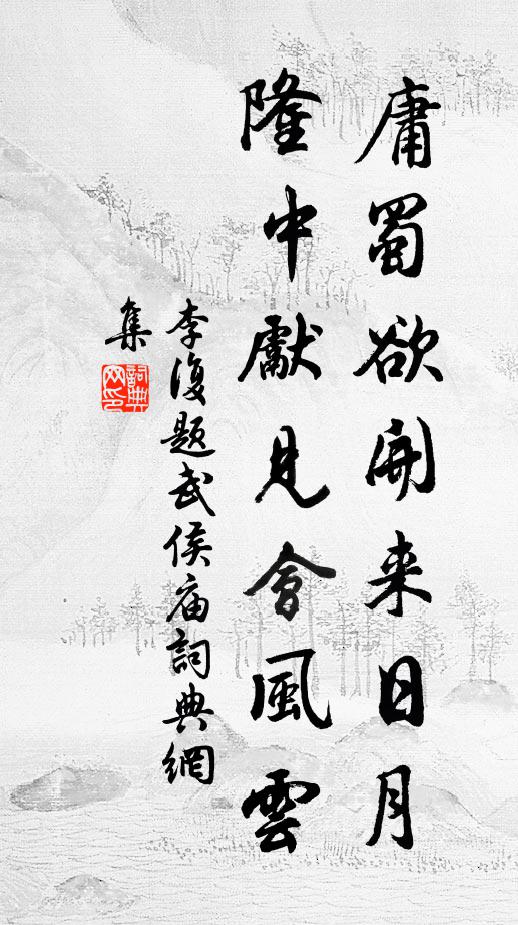 庸蜀欲開来日月
隆中獻見會風雲
李復題武侯庙詞典網
集
詞典網印